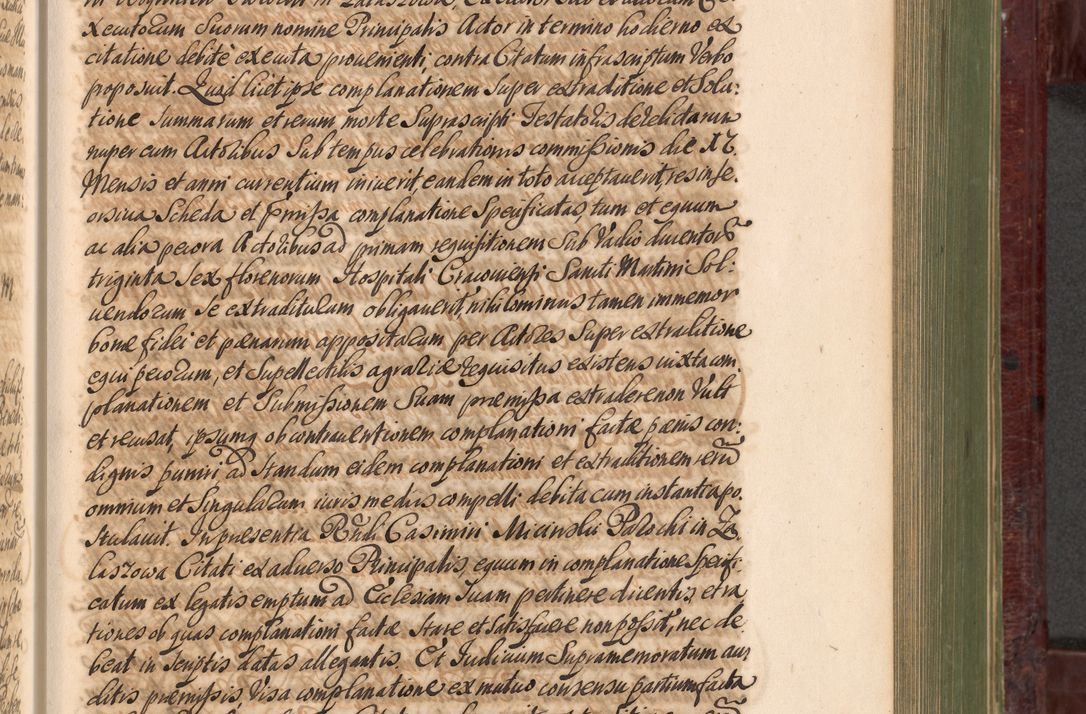 xecutorum Suorum nomine Principalis Actor in termino hodierno ex
citatione debité executa provenienti, contra Citatum infrascriptum Verbo
proposuit. Quod licet ipse complanationem Super extraditione et Solu:
tione Summarum et rerum morte Suprascripti Testatoris derelictarum
nuper cum Actoribus Sub tempus celebrationis commissionis die XI.
Mensis et anni currentium inierit, eandem in toto acceptaverit, res inse.
orsiva Scheda et præmissa complanatione Specificatas, tum et equum
ac alia pecora Actoribus ad primam requisitionem Sub Vadio ducentorũ
triginta Sex florenorum Hospitali Cracoviensi Sancti Martini Sol:
vendorum Se extraditurum obligaverit, nihilominus tamen immemor
bonæ fidei et pænarum appositarum per Actores Super extraditione
equi pecorum, et Supellectilis agrariæ requisitus existens iuxta com
planationem et Submissionem Suam præmissa extradere non Vult
et recusat, ipsumq ob contraventionem complanationi factæ pænis con:
dignis puniri ad Standum eidem complanationi et extraditionem rerũ
omnium et Singularum iuris mediis compelli debita cum instantia po.
stulavit. In præsentia Rñdi Casimiri Micinski Parochi in Za
liszowa Citati ex adverso Principalis, equum in complanatione Specifi:
catum ex legatis emptum ad Ecclesiam Suam pertinere dicentis, et ra
tiones ob quas complanationi factæ Stare et Satisfacere non possit, nec de
beat in Scriptis datas allegantis. Et Iudicium Supramemoratum au
ditis præmissis, Visa complanatione ex mutuo consensu partium facta